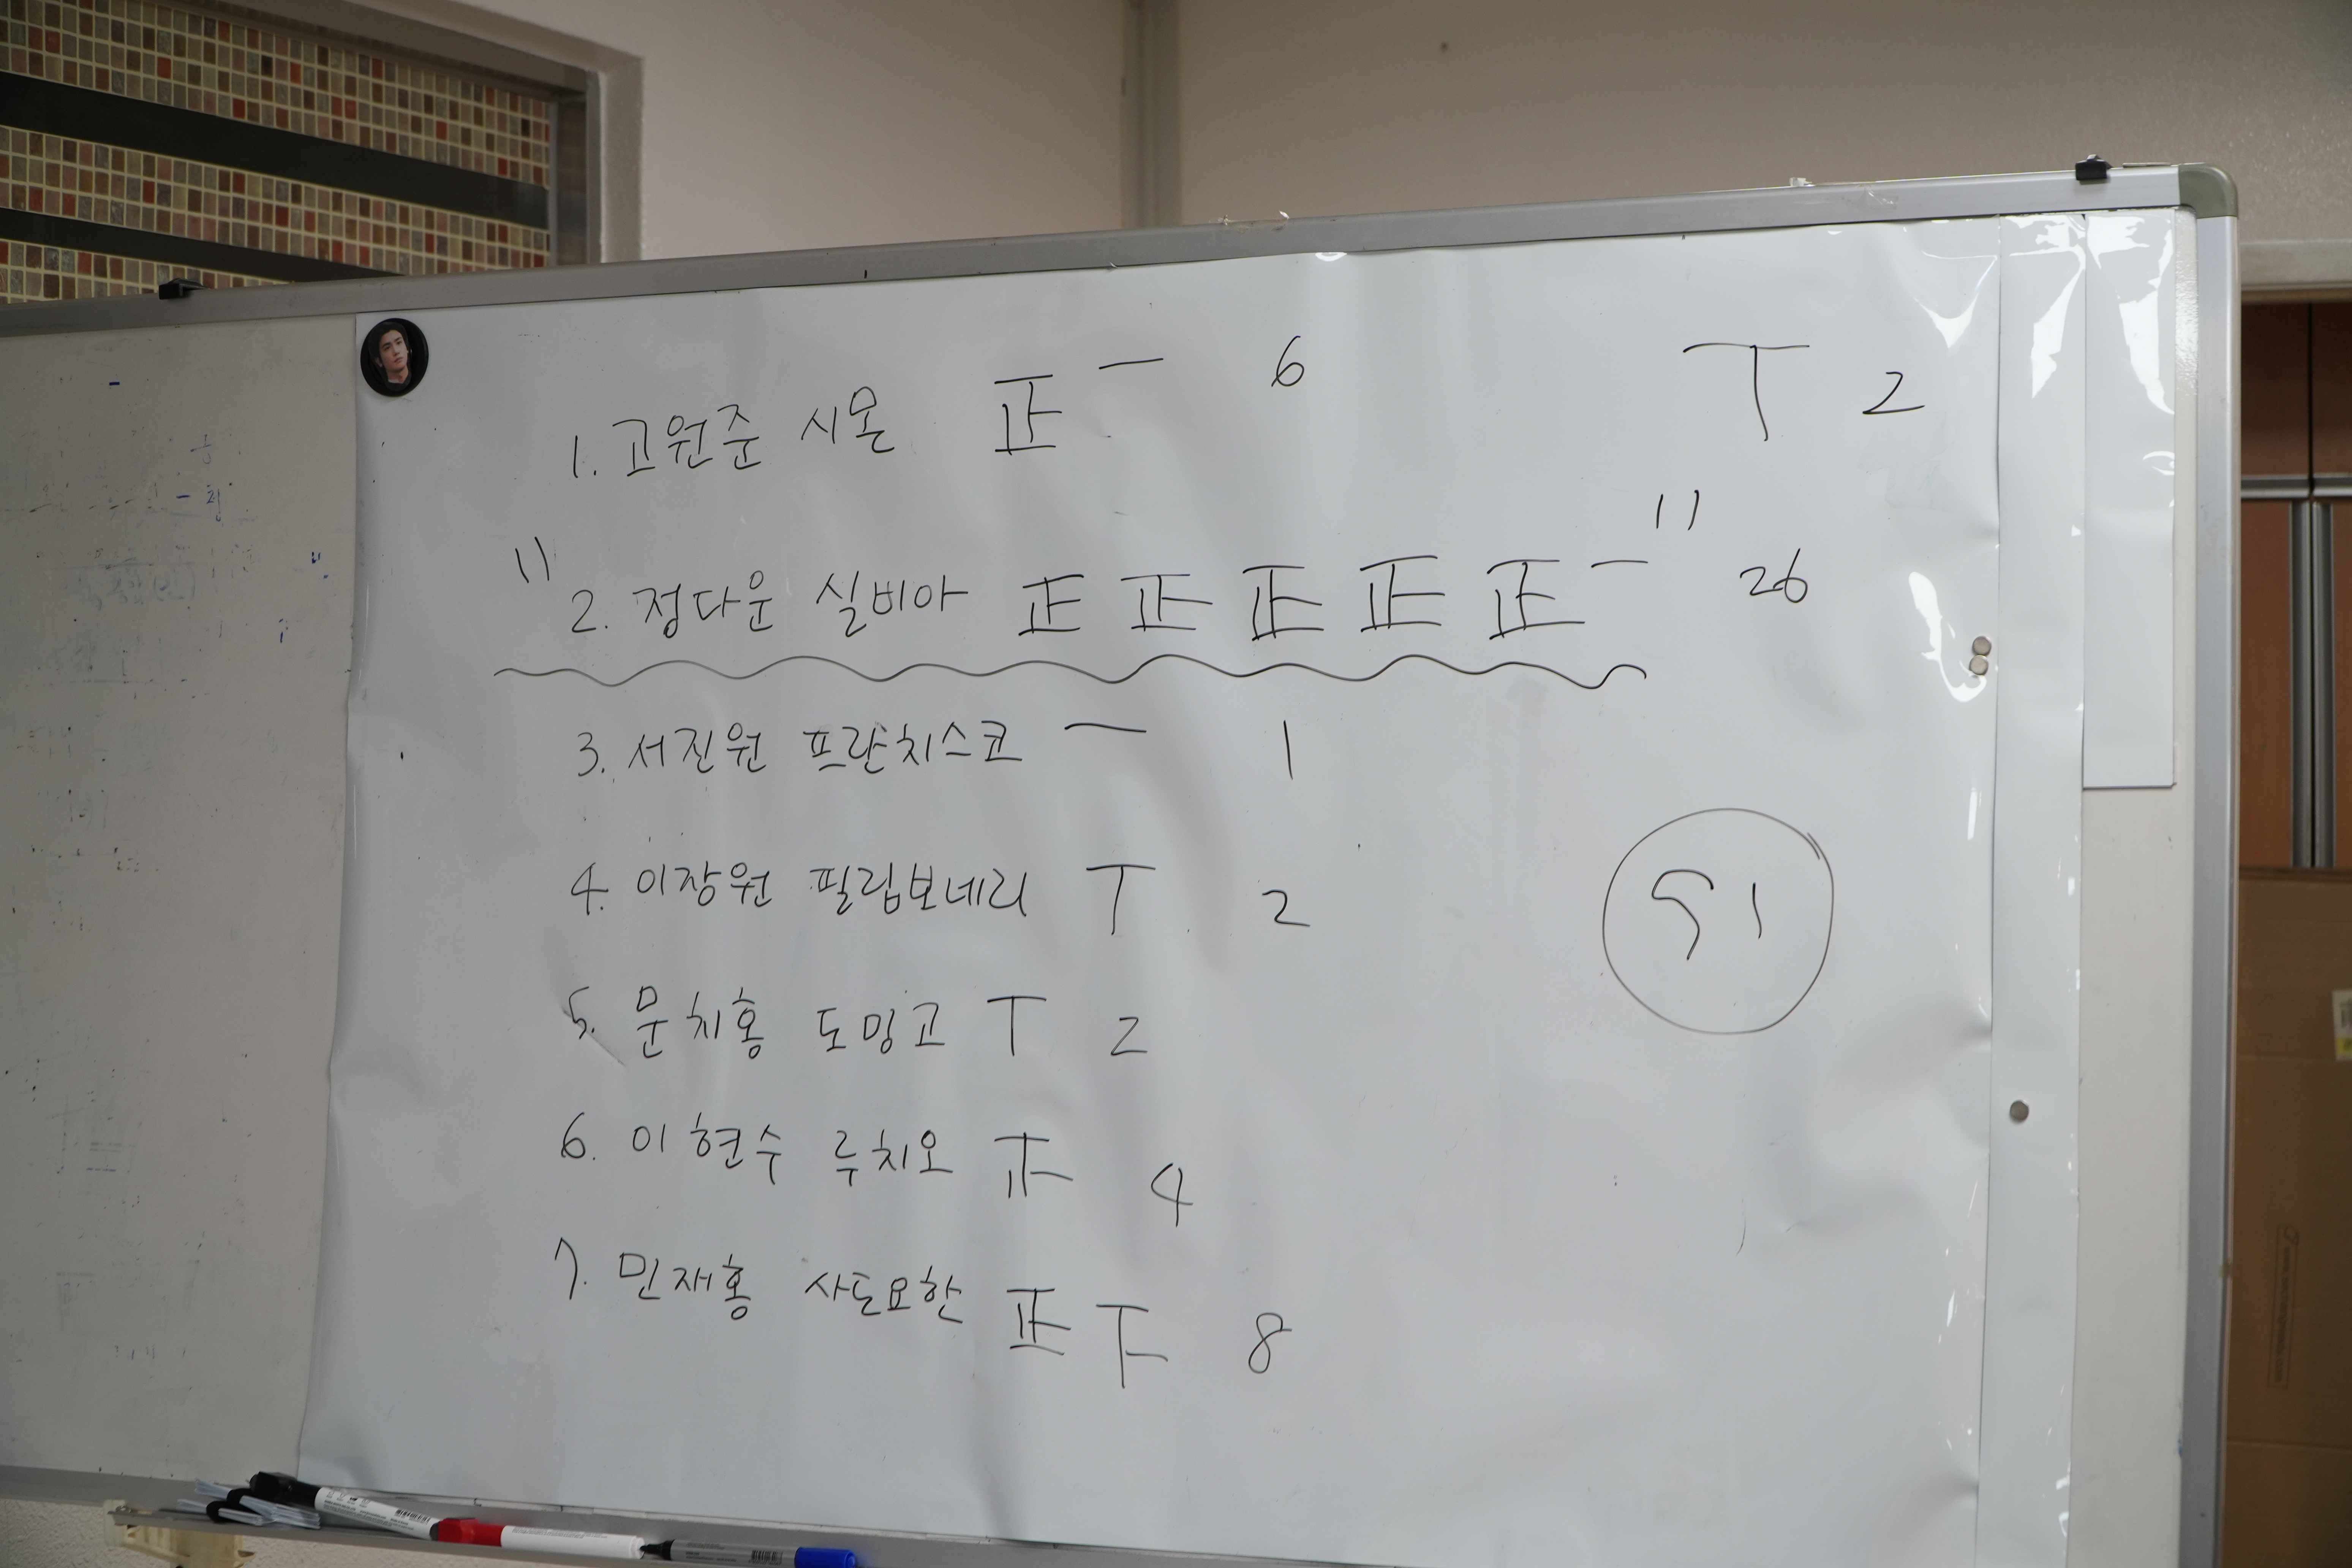 1. 고원준 시몬 正 一 6
丅 2
2. 정다운 실비아 正 正 正 正 正 一 26
3. 서진원 프란치스코 一 1
4. 이장원 필립보네리 丅 2
51
5. 문치홍 도밍고 丅 2
6. 이현수 루치오 正 4
7. 민재홍 사도요한 正 下 8